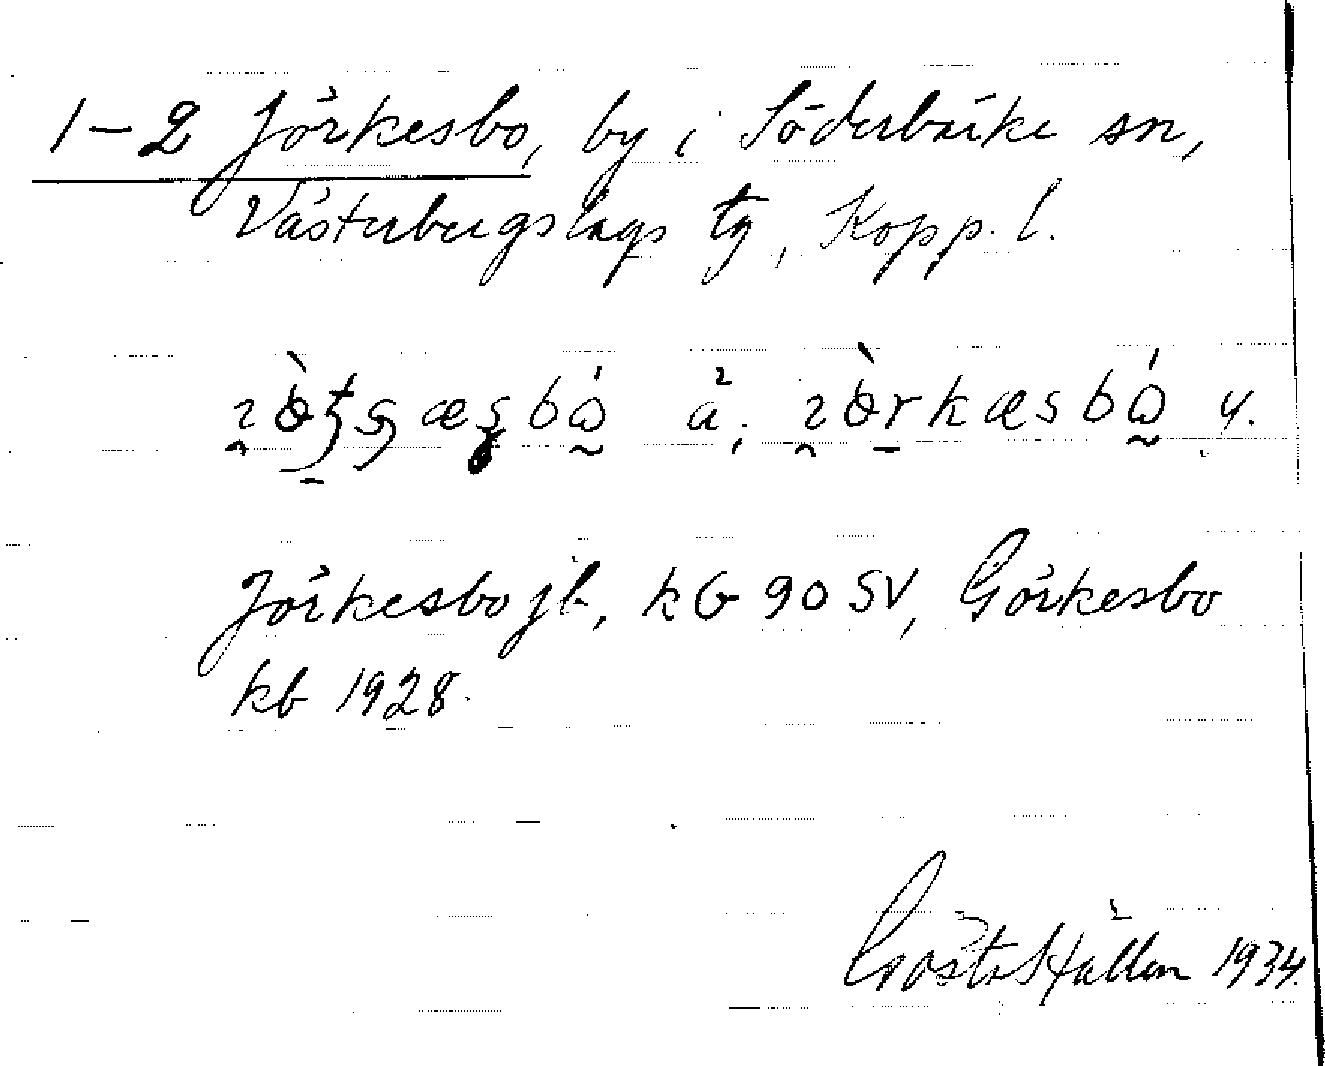 1–2 Jörkesbo, by i Söderbärke sn,
Västerbergslags tg, Kopp. l.
ä; y.
Jörkesbo jb, kb 90 SV, Görkesbo
kb 1928.
Gösta Hallen 1934.